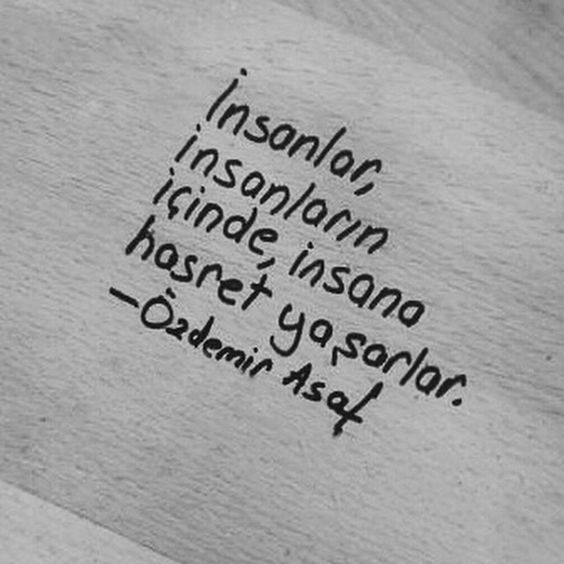 İnsanlar,
insanların
içinde, insana
hasret yaşarlar.
—Özdemir Asaf